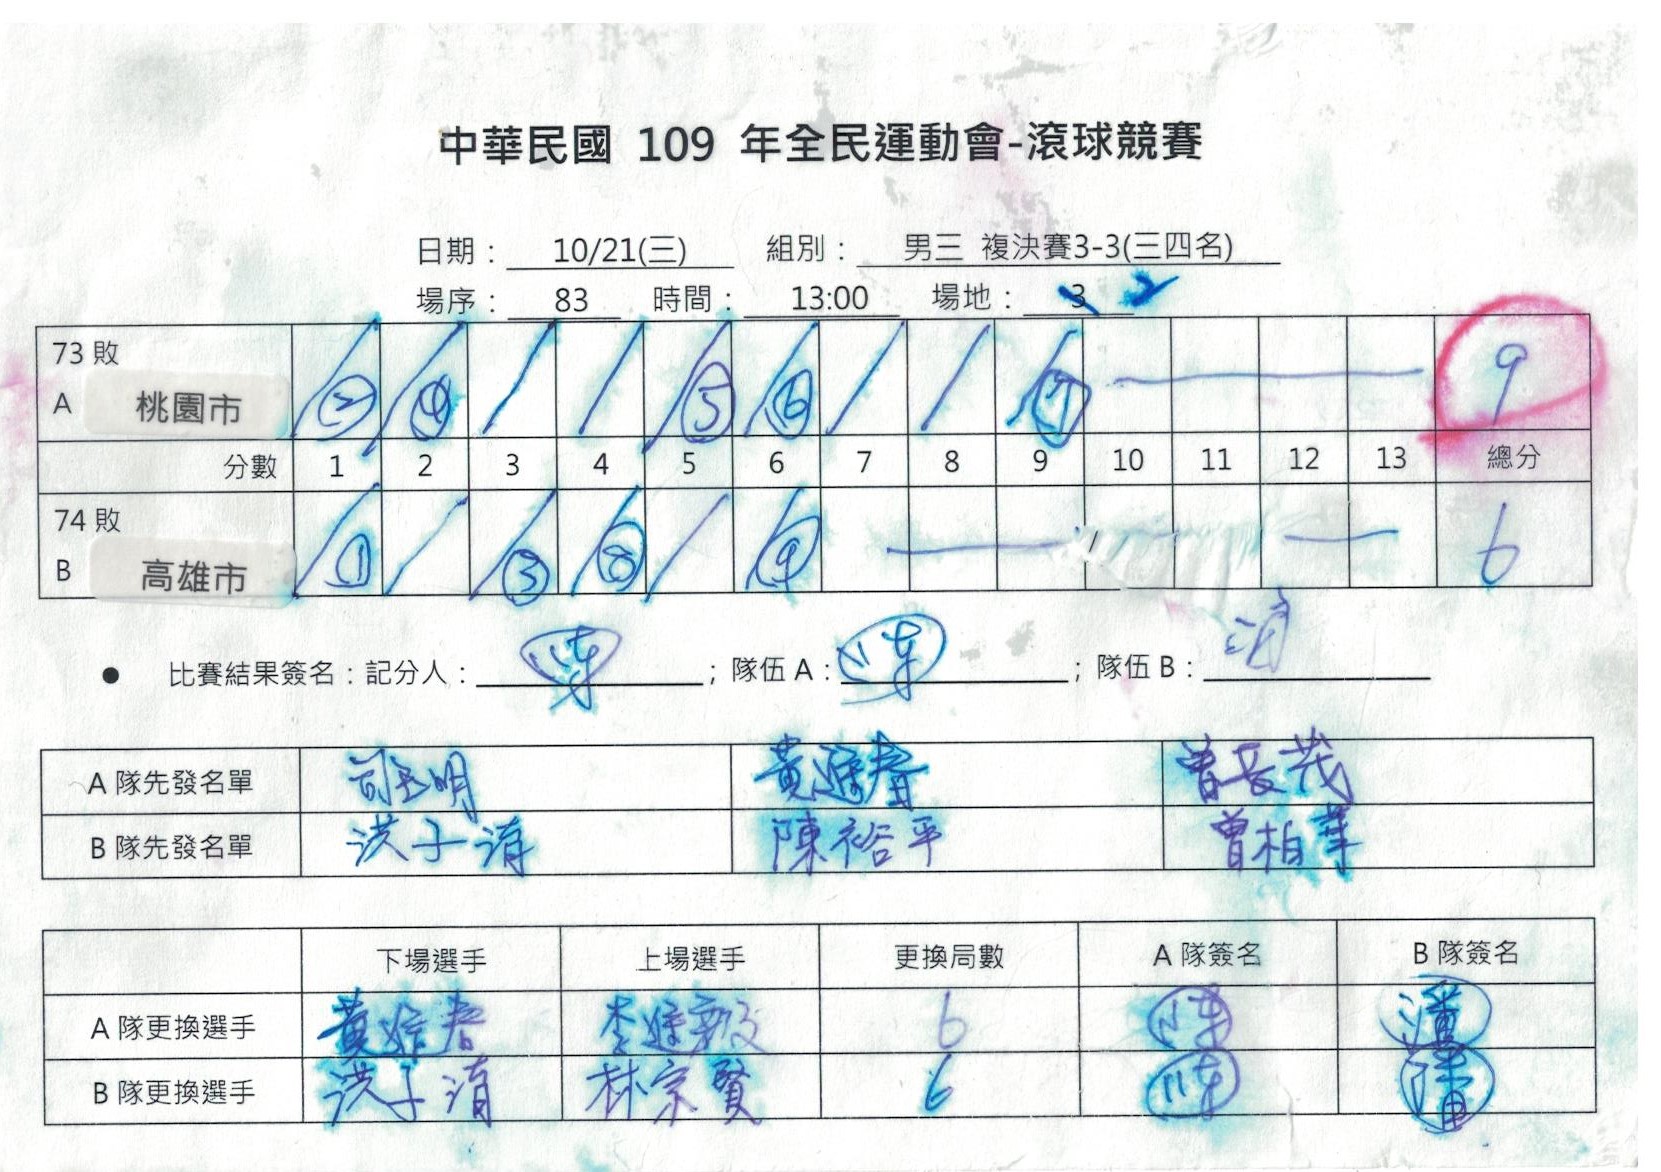 中華民國 109 年全民運動會-滾球競賽
日期： 10/21(三) 組別： 男三 複決賽3-3(三四名)
場序： 83 時間： 13:00 場地： 3 2
73 敗
A 桃園市 ② ④ / / ⑤ ⑥ / / ⑦ 9
分數 1 2 3 4 5 6 7 8 9 10 11 12 13 總分
74 敗
B 高雄市 ① / ③ ⑧ / ⑨ 6
● 比賽結果簽名：記分人： ；隊伍 A： ；隊伍 B：
A 隊先發名單 黃進春 曾長茂
B 隊先發名單 洪子淯 陳裕平 曾柏
下場選手 上場選手 更換局數 A 隊簽名 B 隊簽名
A 隊更換選手 黃進春 李進 6 潘
B 隊更換選手 洪子淯 林宗賢 6